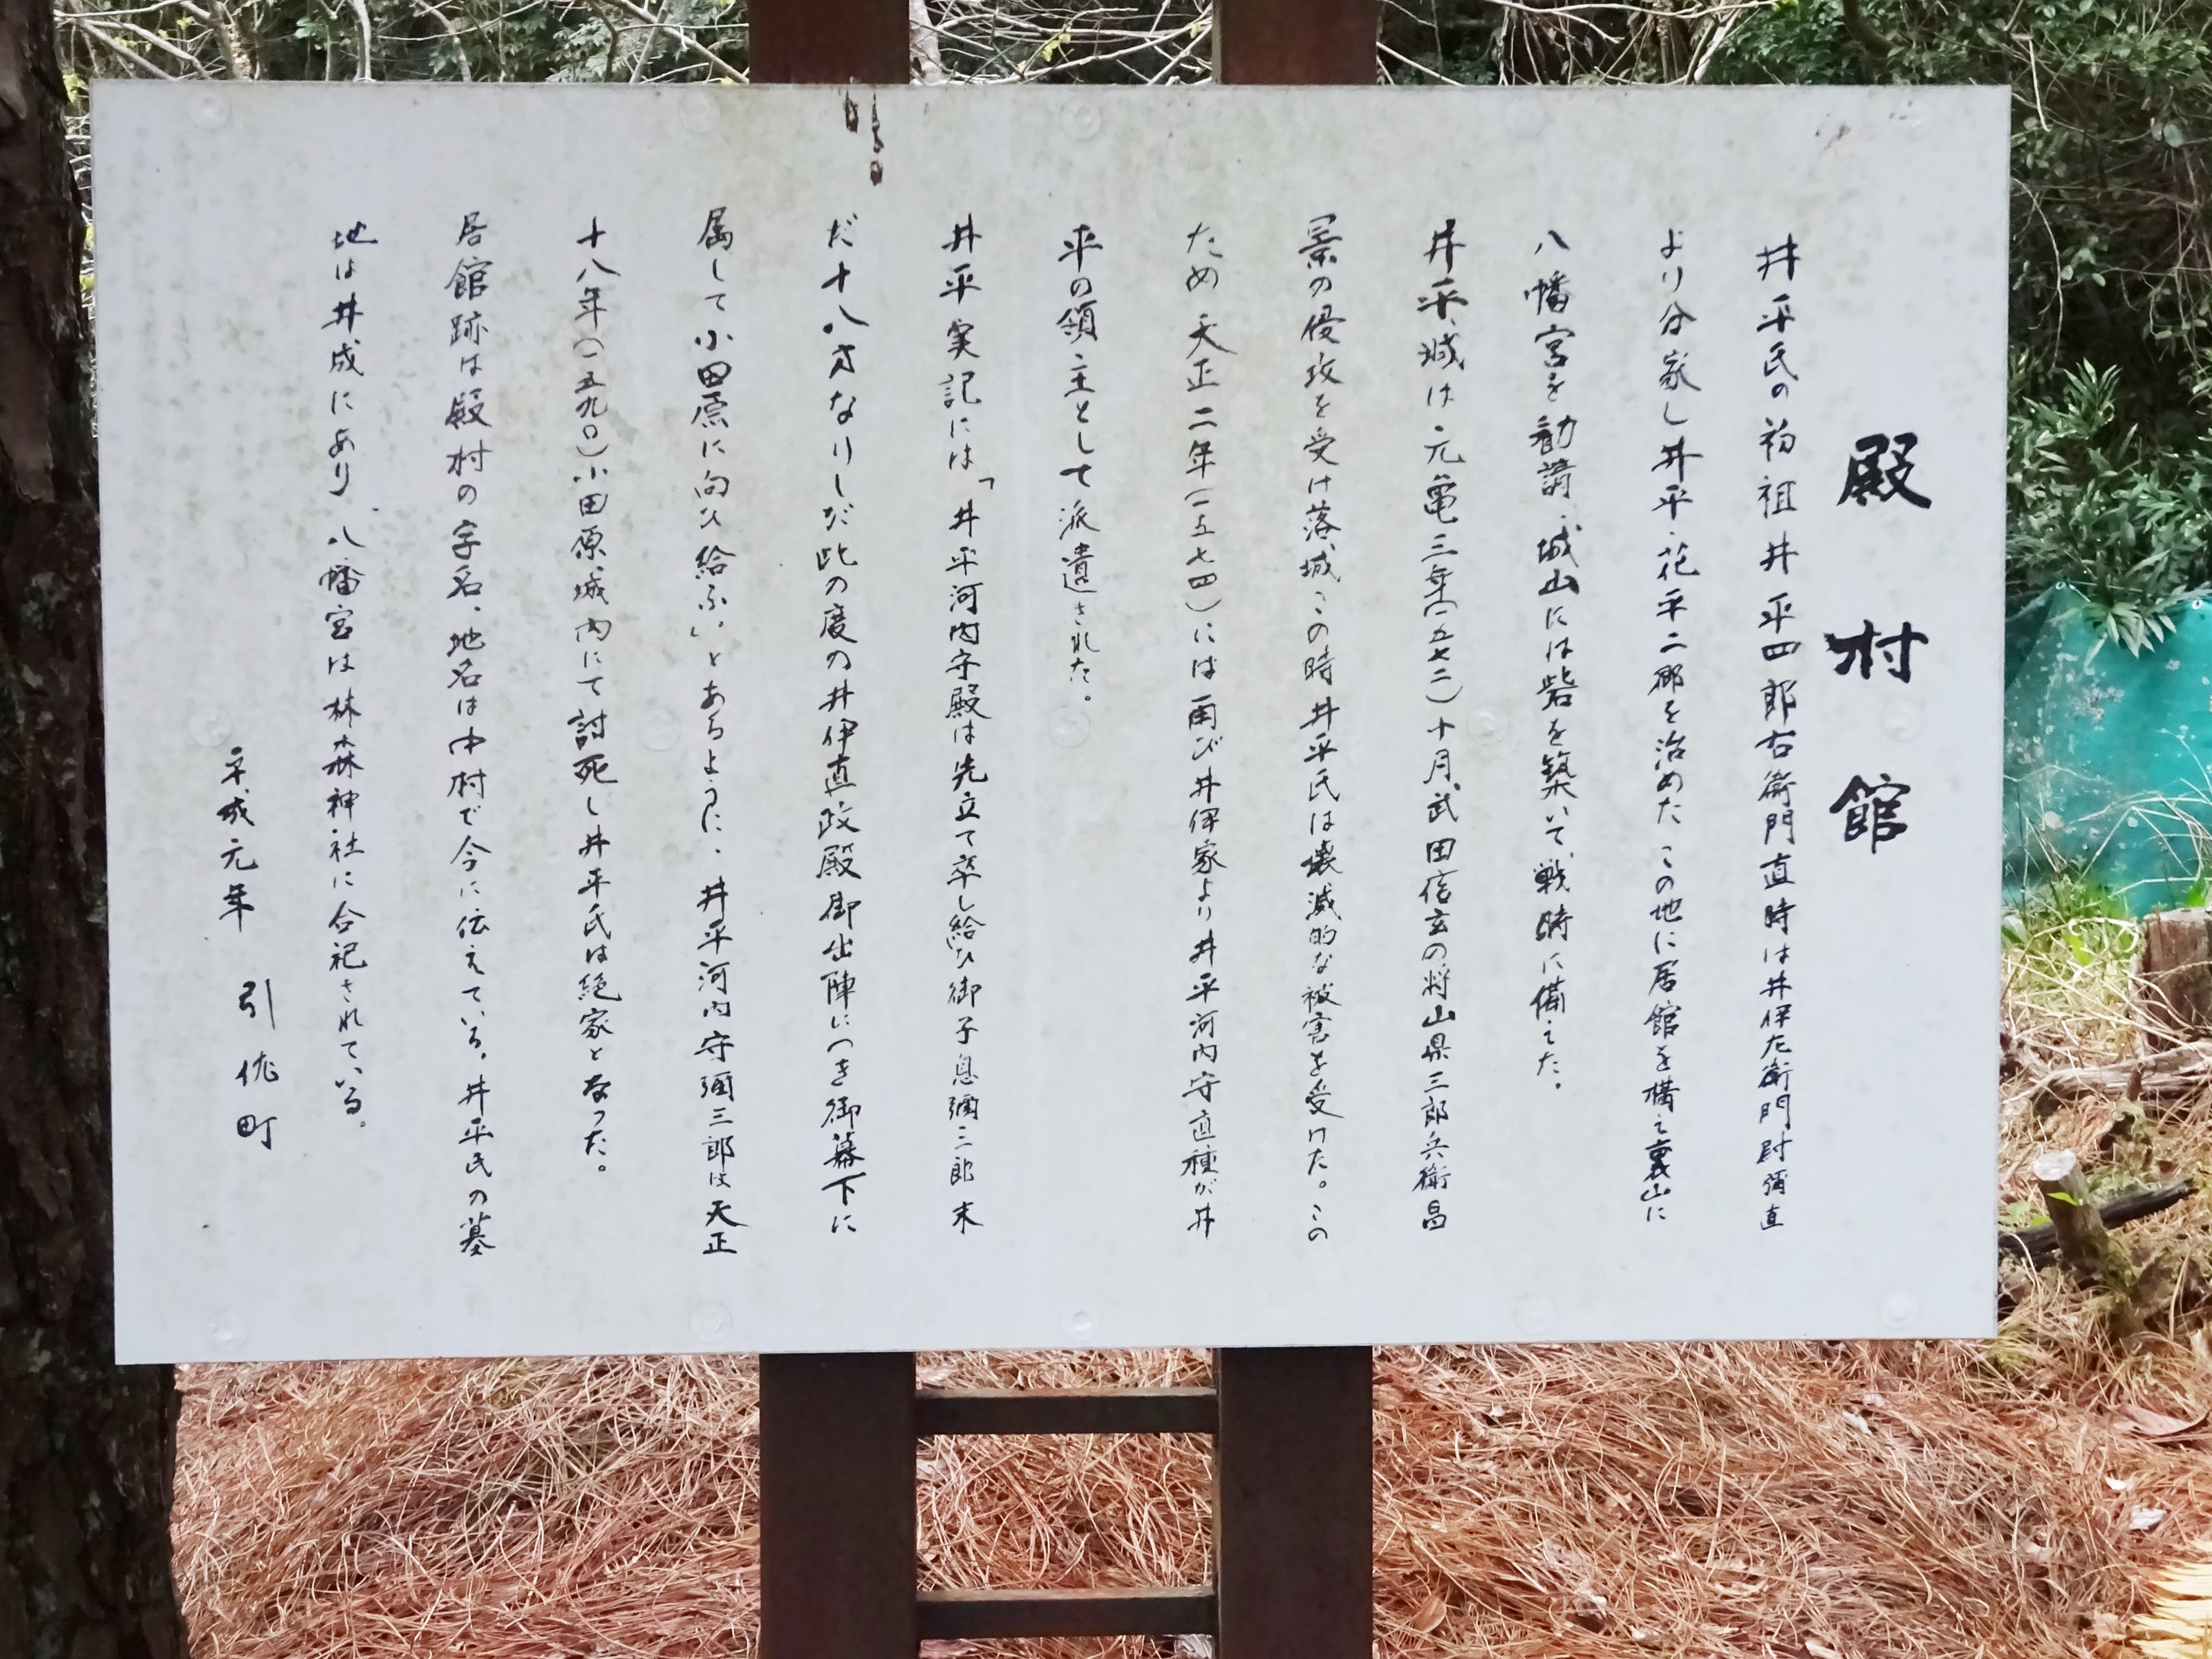 殿村館
井平氏の初祖井平四郎右衛門直時は井伊左衛門尉彌直
より分家し井平、花平二郷を治めた この地に居館を構え裏山に
八幡宮を勧請、城山には砦を築いて戦時に備えた。
井平城は元亀三年(一五七二)十月、武田信玄の将山県三郎兵衛昌
景の侵攻を受け落城、この時井平氏は壊滅的な被害を受けた。この
ため天正二年(一五七四)には再び井伊家より井平河内守直種が井
平の領主として派遣された。
井平実記には「井平河内守殿は先立て卒し給ひ御子息彌三郎末
だ十八才なりしが此の度の井伊直政殿御出陣につき御幕下に
属して小田原に向ひ給ふ」とあるように、井平河内守彌三郎は天正
十八年(一五九〇)小田原城内にて討死し井平氏は絶家となった。
居館跡は殿村の字名、地名は中村で今に伝えている。井平氏の墓
地は井成にあり、八幡宮は林森神社に合祀されている。
平成元年 引佐町